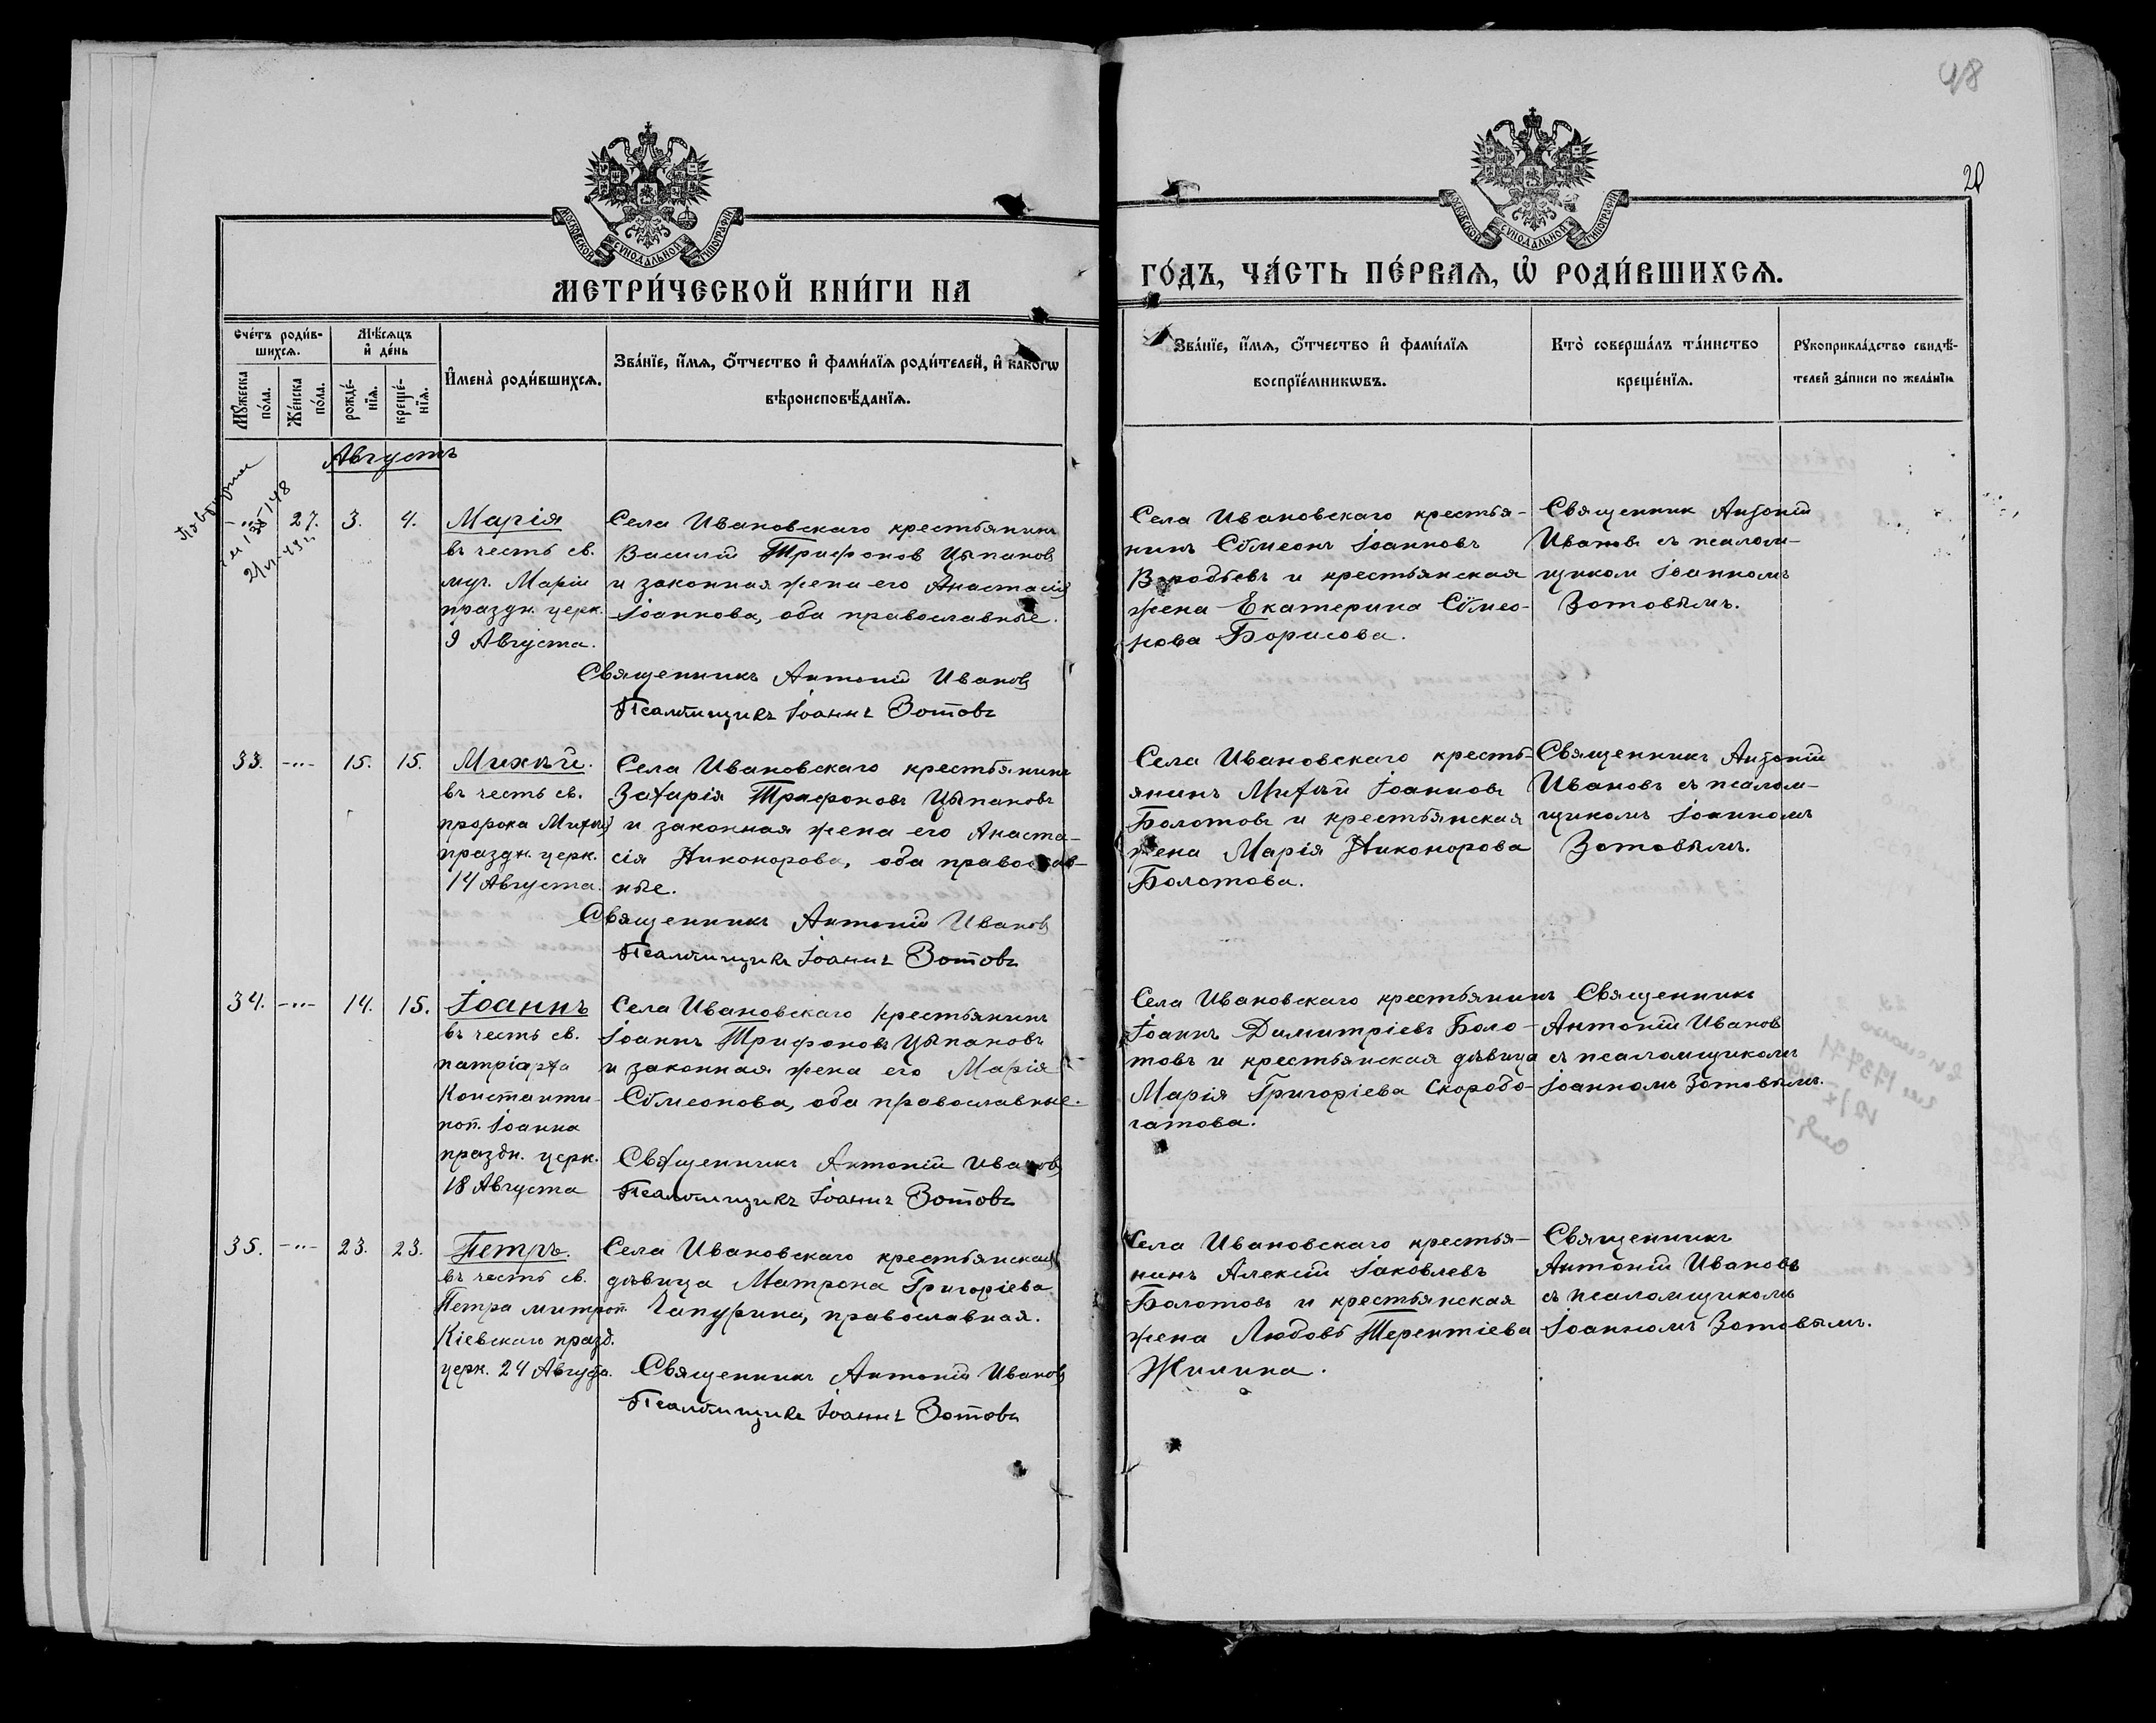 48
20
МОСКОВСКОЙ СИНОДАЛЬНОЙ ТИПОГРАФІИ
МОСКОВСКОЙ СИНОДАЛЬНОЙ ТИПОГРАФІИ
МЕТРИ́ЧЕСКОЙ КНИ́ГИ НА
ГО́ДЪ, ЧА́СТЬ ПЕ́РВАЯ, Ѡ РОДИ́ВШИХСЯ.
Сче́тъ роди́в-
шихся.
Мѣ́сяцъ
и де́нь
Му́жеска
по́ла.
Же́нска
по́ла.
рожде́-
нія.
креще́-
нія.
Имена̀ роди́вшихся.
Зва́нїе, и́мя, о́тчество и фами́лїя роди́телей, и како́гѡ
вѣроисповѣ́данїя.
Зва́нїе, и́мя, о́тчество и фами́лїя
воспрїе́мникѡвъ.
Кто̀ соверша́лъ та́инство
креще́нїя.
Рукоприкла́дство свидѣ́-
телей за́писи по жела́нїю
Августъ
27. 3. 4.
Марія
въ честь св.
муч. Маріи
праздн. церк.
9 Августа.
Села Ивановскаго крестьянинъ
Василій Трифонов Цыпанов
и законная жена его Анастасія
Іоаннова, оба православные.
Священникъ Антоній Иванов
Псаломщикъ Іоаннъ Зотовъ
Села Ивановскаго крестья-
нинъ Сѵмеонъ Іоанновъ
Воробьевъ и крестьянская
жена Екатерина Сѵмео-
нова Борисова.
Священник Антоній
Ивановъ съ псалом-
щиком Іоанномъ
Зотовымъ.
33. -"- 15. 15.
Михѣй.
въ честь св.
пророка Михѣя
праздн. церк.
14 Августа.
Села Ивановскаго крестьянинъ
Захарія Трифоновъ Цыпановъ
и законная жена его Анаста-
сія Никонорова, оба православ-
ные.
Священникъ Антоній Иванов
Псаломщикъ Іоаннъ Зотовъ
Села Ивановскаго кресть-
янинъ Михѣй Іоанновъ
Болотовъ и крестьянская
жена Марія Никонорова
Болотова.
Священникъ Антоній
Ивановъ съ псалом-
щикомъ Іоанномъ
Зотовымъ.
34. -"- 14. 15.
Іоаннъ
въ честь св.
патріарха
Константи-
ноп. Іоанна
праздн. церк.
18 Августа
Села Ивановскаго крестьянинъ
Іоаннъ Трифоновъ Цыпановъ
и законная жена его Марія
Сѵмеонова, оба православные.
Священникъ Антоній Иванов
Псаломщикъ Іоаннъ Зотовъ
Села Ивановскаго крестьянинъ
Іоаннъ Димитріевъ Боло-
товъ и крестьянская дѣвица
Марія Григоріева Скоробо-
гатова.
Священникъ
Антоній Иванов
съ псаломщикомъ
Іоанномъ Зотовымъ.
35. -"- 23. 23.
Петръ.
въ честь св.
Петра митроп.
Кіевскаго празд.
церк. 24 Августа.
Села Ивановскаго крестьянская
дѣвица Матрона Григоріева
Чапурина, православная.
Священникъ Антоній Иванов
Псаломщикъ Іоаннъ Зотовъ
Села Ивановскаго крестья-
нинъ Алексій Іаковлевъ
Болотовъ и крестьянская
жена Любовь Терентіева
Жилина.
Священникъ
Антоній Ивановъ
съ псаломщикомъ
Іоанномъ Зотовымъ.